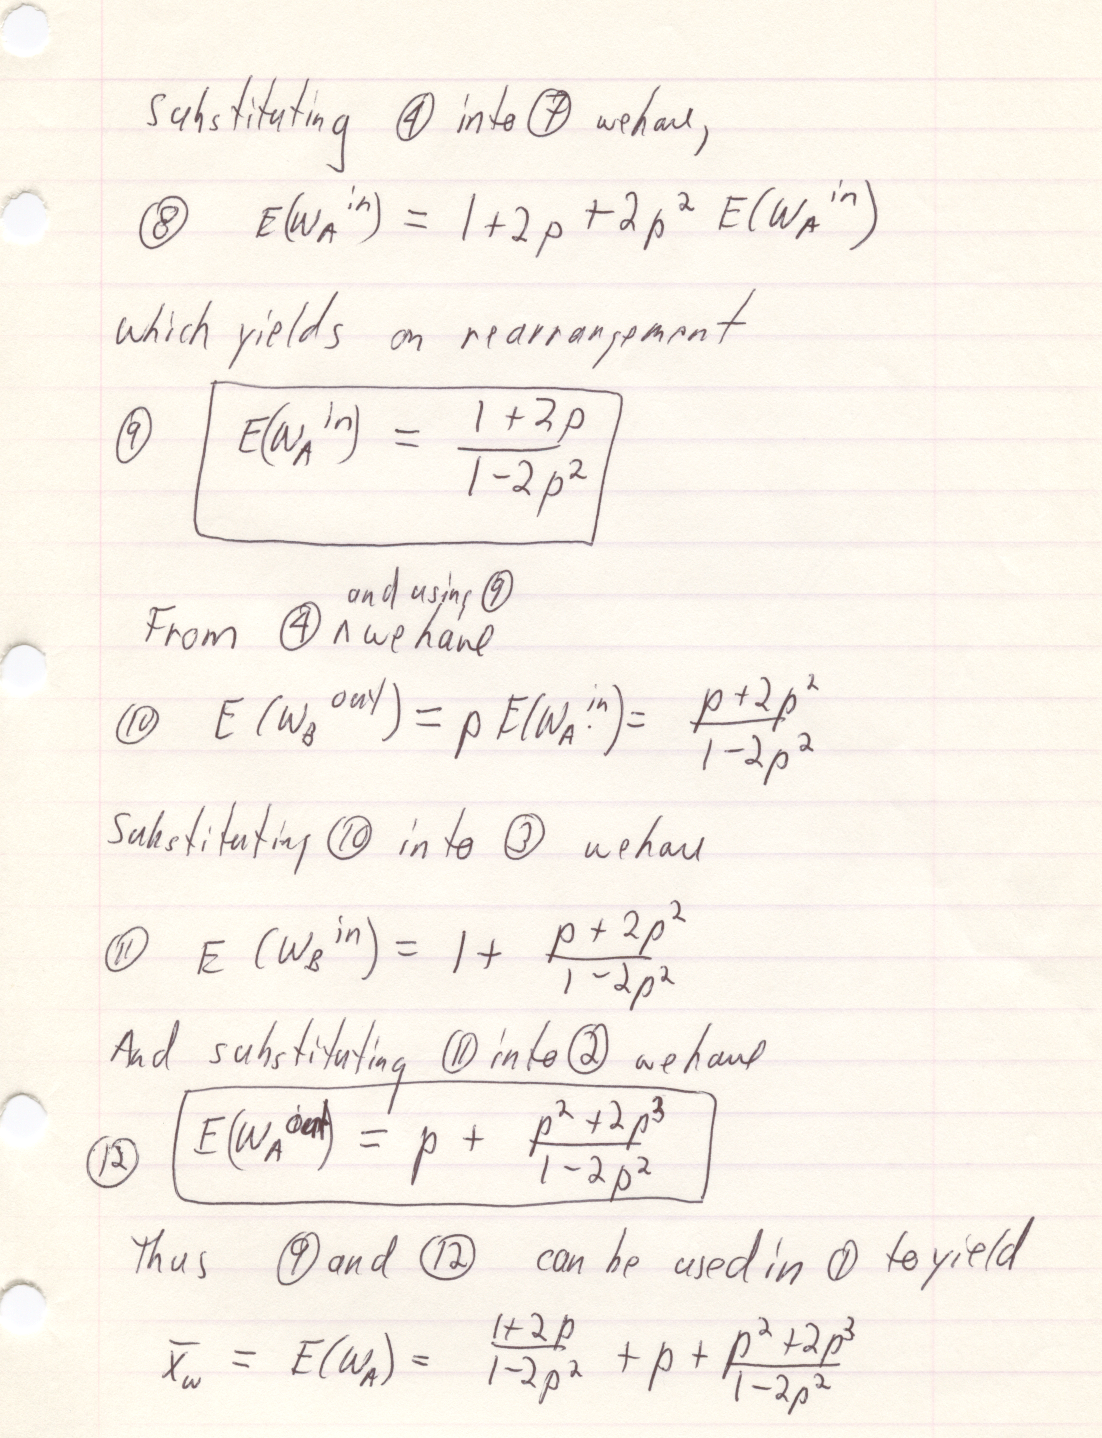 Substituting ④ into ⑦ we have,
⑧ E(W_A^in) = 1+2p+2p² E(W_A^in)
which yields on rearrangement
⑨ E(W_A^in) = (1+2p)/(1-2p²)
and using ⑨
From ④ ∧ we have
⑩ E(W_B^out) = p E(W_A^in) = (p+2p²)/(1-2p²)
Substituting ⑩ into ③ we have
⑪ E(W_B^in) = 1 + (p+2p²)/(1-2p²)
And substituting ⑪ into ② we have
⑫ E(W_A^out) = p + (p²+2p³)/(1-2p²)
Thus ⑨ and ⑫ can be used in ① to yield
x̄_w = E(W_A) = (1+2p)/(1-2p²) + p + (p²+2p³)/(1-2p²)